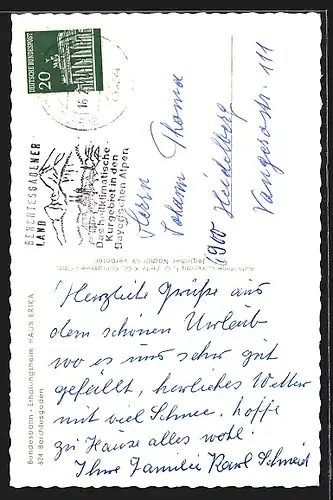 DEUTSCHE BUNDESPOST
20
BERCHTESGADENER
LAND
Das heilklimatische
Kurgebiet in den
Bayerischen Alpen
Herrn
Johann Thoma
6900 Heidelberg
Vangerostr. 111
jeglicher Nachdruck verboten
Bundesbahn - Erholungsheim HAUS ERIKA
824 Berchtesgaden
Herzliche Grüße aus
dem schönen Urlaub
wo es uns sehr gut
gefällt, herrliches Wetter
mit viel Schnee. hoffe
zu Hause alles wohl.
Ihre Familie Karl Schmid